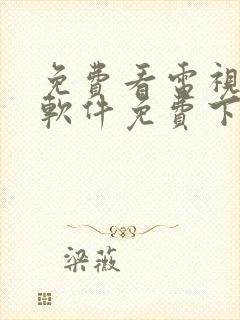 免費看電視
軟件免費下
梁薇